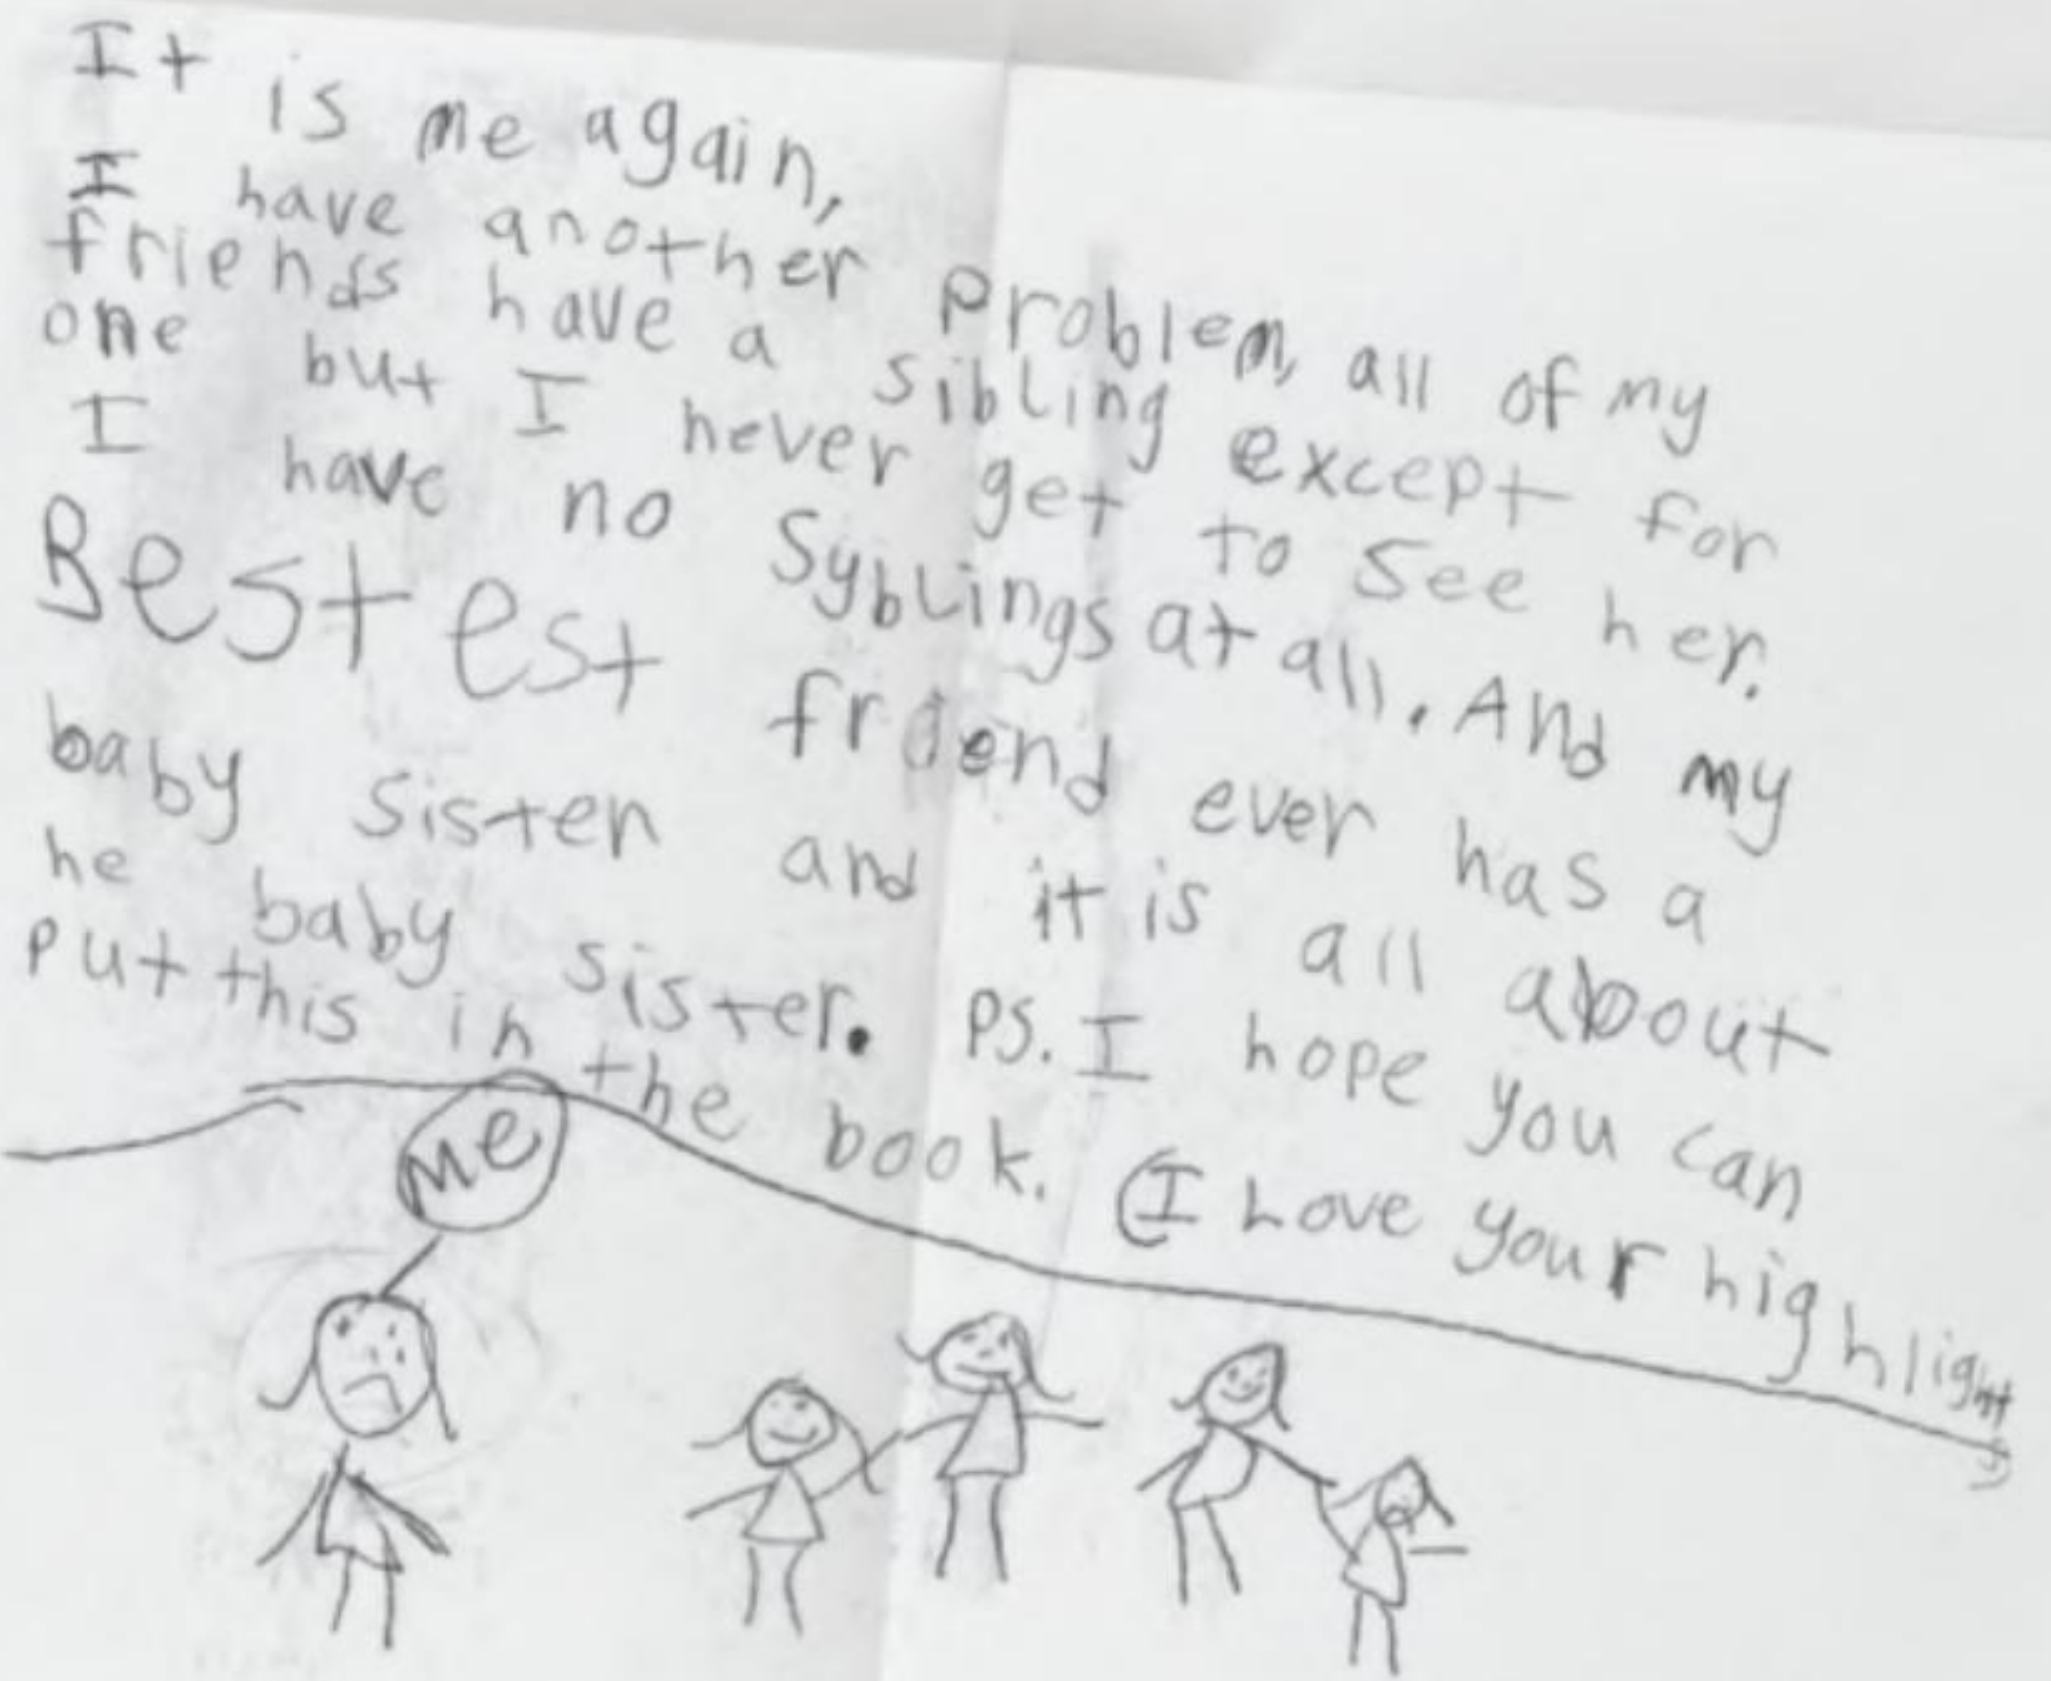 It is me again,
I have another problem, all of my
friends have a sibling except for
one but I never get to see her.
I have no Syblings at all. And my
Bestest friend ever has a
baby sister and it is all about
he baby sister. PS. I hope you can
put this in the book. (I Love your highlights
me